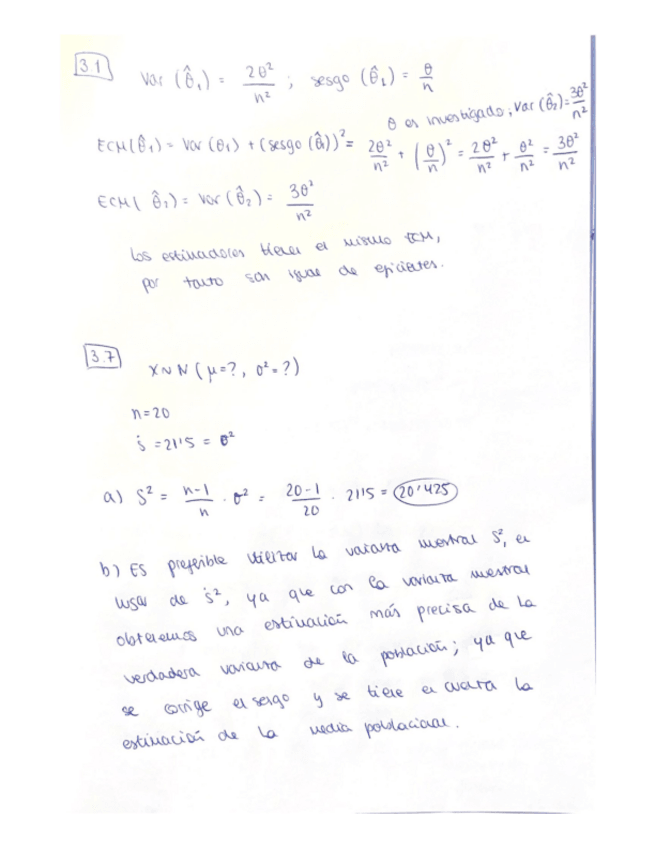 3.1
Var (θ̂₁) = 2θ²/n² ; sesgo (θ̂₁) = θ/n
θ es investigado; Var (θ̂₂) = 3θ²/n²
ECM(θ̂₁) = Var (θ₁) + (sesgo (θ̂₁))² = 2θ²/n² + (θ/n)² = 2θ²/n² + θ²/n² = 3θ²/n²
ECM( θ̂₂) = Var (θ̂₂) = 3θ²/n²
Los estimadores tienen el mismo ECM,
por tanto son igual de eficientes.
3.7
X∼N (μ=?, σ²=?)
n=20
ṡ = 21'5 = σ²
a) S² = n-1/n · σ² = 20-1/20 · 21'5 = 20'425
b) Es preferible utilizar la varianza mestral S², en
lugar de ṡ², ya que con la varianza mestral
obtenemos una estimación más precisa de la
verdadera varianza de la población; ya que
se corrige el sesgo y se tiene en cuenta la
estimación de la media poblacional.